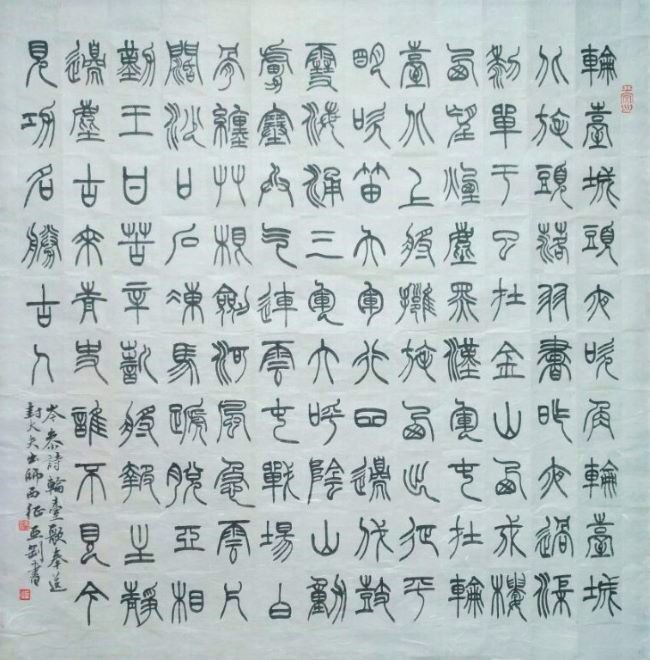 輪臺城頭夜吹角輪臺城
北旄頭落羽書昨夜過渠
黎單于已在金山西戍樓
西望煙塵黑漢軍屯在輪
臺北上將擁旄西出征平
明吹笛大軍行四邊伐鼓
雪海涌三軍大呼陰山動
虜塞兵氣連雲屯戰場白
骨纏艸根劍河風急雲片
闊沙口石凍馬蹏脫亞相
勤王甘苦辛誓將報主靜
邊塵古來青史誰不見今
見功名勝古人
岑參詩輪臺歌奉送
封大夫出師西征 書